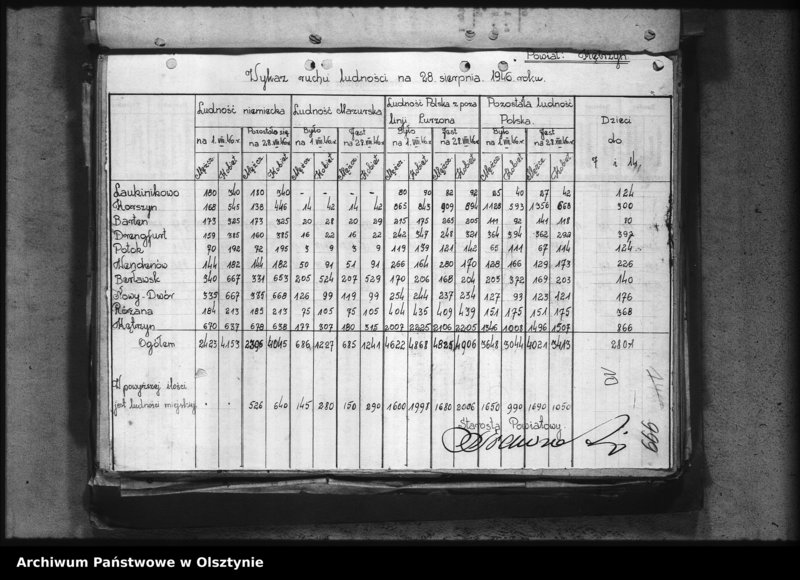 Powiat: Kębrzyn
Wykaz ruchu ludności na 28. sierpnia. 1946. roku.
Ludność niemiecka Ludność Mazurska Ludność Polska z poza linji Curzona Pozostała ludność Polska. Dzieci do 7 i 14.
na 1.VIII.46r. Pozostała się na 28.VIII.46r. Było na 1.VIII.46r. Jest na 28.VIII.46r. Było na 1.VIII.46r. Jest na 28.VIII.46r. Było na 1.VIII.46r. Jest na 28.VIII.46r.
Mężcz. Kobiet Mężcz. Kobiet Mężcz. Kobiet Mężcz. Kobiet Mężcz. Kobiet Mężcz. Kobiet Mężcz. Kobiet Mężcz. Kobiet
Łaukinikowo 180 340 180 340 - - - - 80 90 82 92 25 40 27 42 124
Korszyn 168 545 138 446 14 42 14 42 865 843 909 894 1128 593 1356 668 300
Barten 173 325 173 325 20 28 20 29 215 175 265 205 111 92 141 118 80
Drengfurt 159 385 160 385 16 22 16 22 242 347 248 321 364 394 362 292 392
Potok 70 192 72 195 3 9 3 9 119 139 121 142 65 111 67 114 124
Wendenów 144 182 144 182 50 91 51 91 266 164 280 170 128 166 129 173 226
Bertawsk 340 667 331 653 205 524 207 529 170 206 168 204 203 372 169 203 140
Nowy-Dwór 335 667 335 668 126 99 119 99 254 244 237 234 127 93 123 121 176
Różana 184 213 185 213 75 105 75 105 404 435 409 439 151 175 151 175 368
Kębrzyn 670 637 678 638 177 307 180 315 2007 2225 2106 2205 1346 1008 1496 1507 866
Ogółem 2423 4153 2396 4045 686 1227 685 1241 4622 4868 4825 4906 3648 3044 4021 3413 2801
W powyższej ilości
jest ludności miejskiej . . 526 640 145 280 150 290 1600 1998 1680 2006 1650 990 1690 1050
Starosta Powiatowy.
666
Archiwum Państwowe w Olsztynie